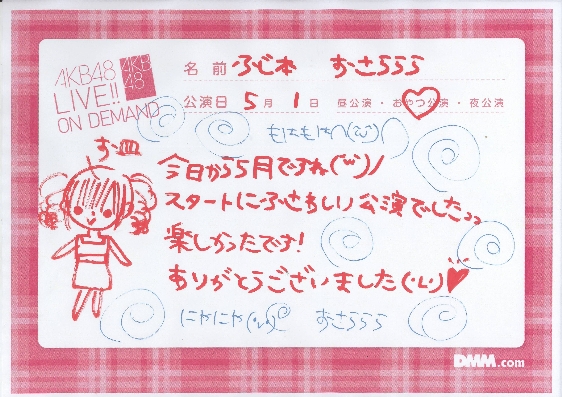 AKB48
LIVE!!
ON DEMAND
AKB
48
名前 ふじ本 おさららら
公演日 5月 1日 昼公演・おやつ公演・夜公演
もはもは
お皿
今日から5月ですね(´`)ノ
スタートにふさわしい公演でしたっっ
楽しかったです!
ありがとうございました
にやにや おさららら
DMM.com